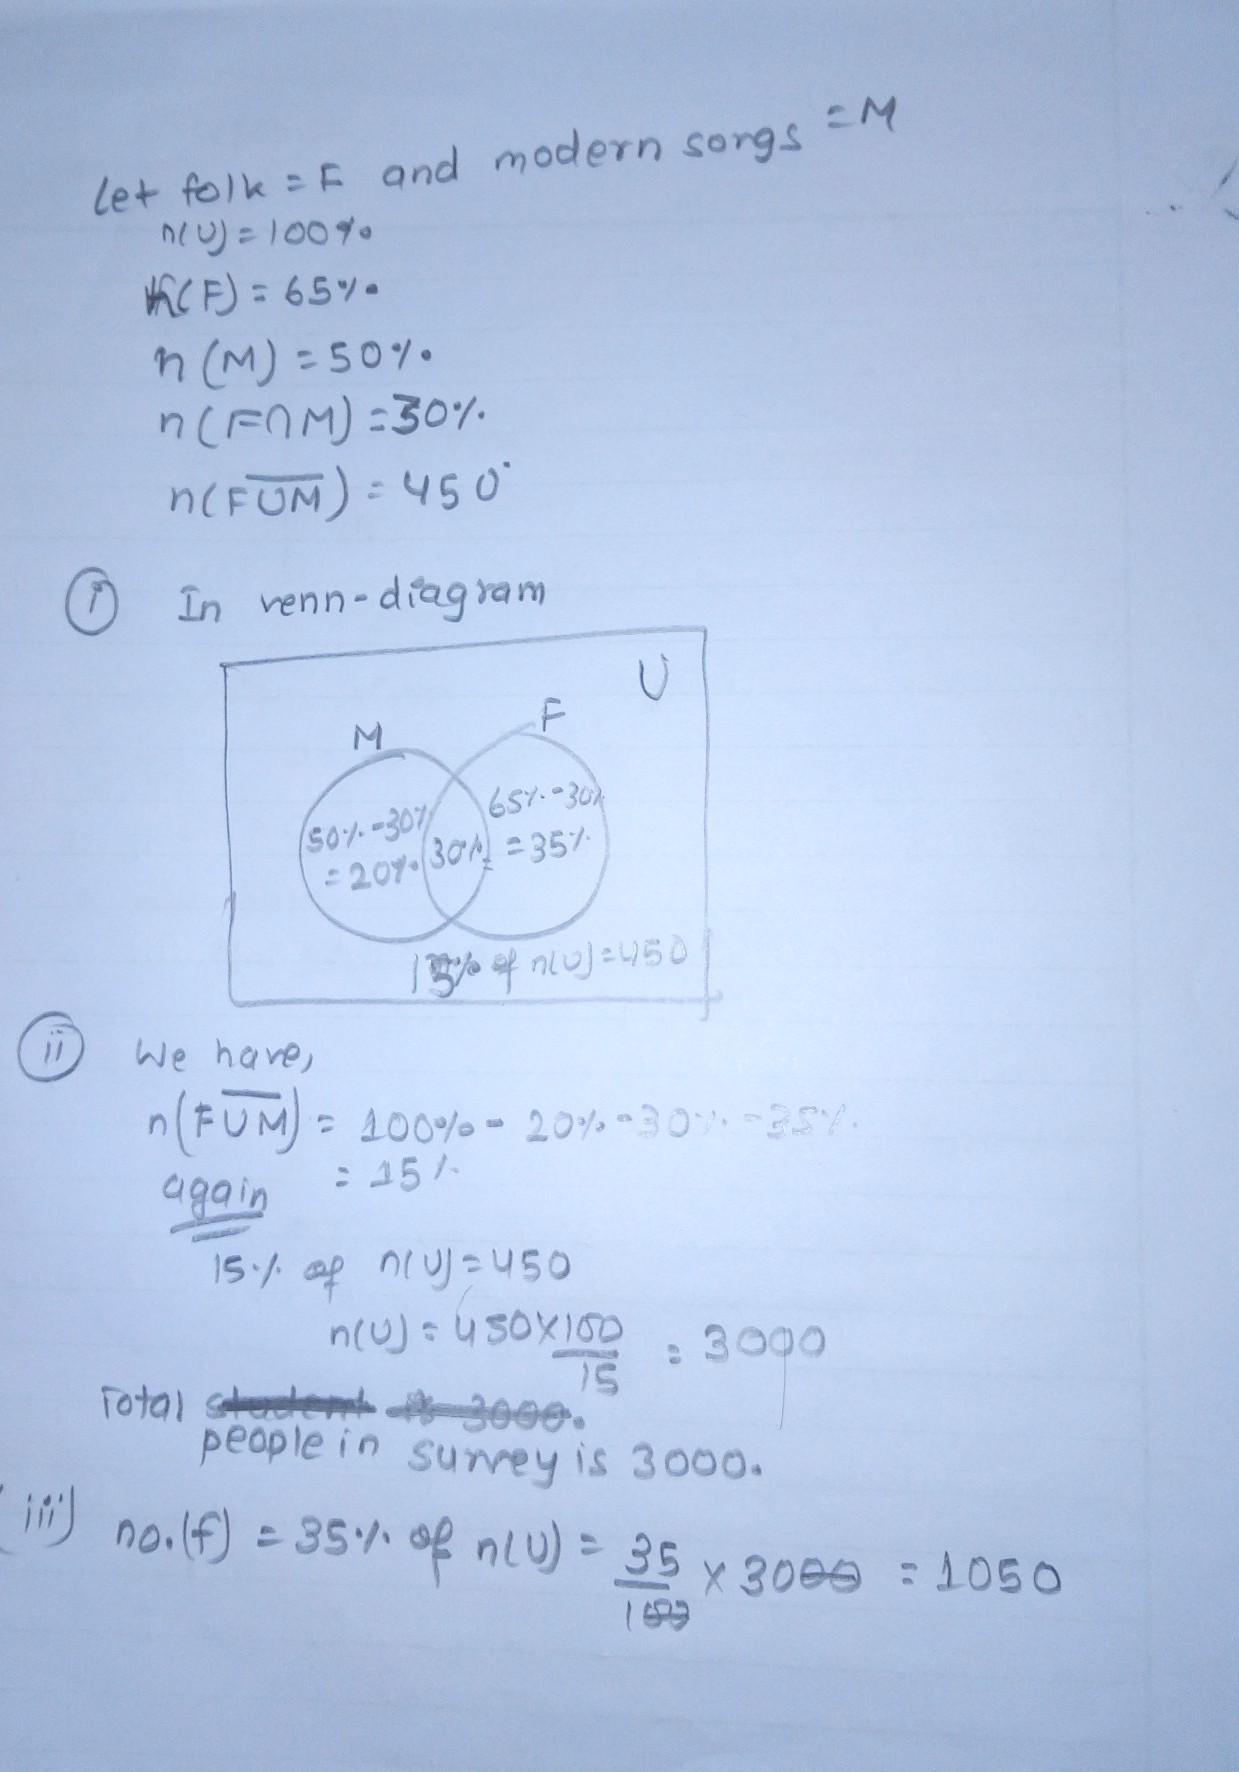 Let folk = F and modern songs = M
n(U) = 100%
n(F) = 65%
n(M) = 50%
n(F∩M) = 30%
n(F\overline{∪M}) = 450
(i) In venn-diagram
U
M F
50%-30% = 20%
30%
65%-30% = 35%
15% of n(U) = 450
(ii) We have,
n(F\overline{∪M}) = 100% - 20% - 30% - 35%
= 15%
again
15% of n(U) = 450
n(U) = 450×100/15 = 3000
Total student is 3000.
people in survey is 3000.
(iii) no.(f) = 35% of n(U) = 35/100 × 3000 = 1050